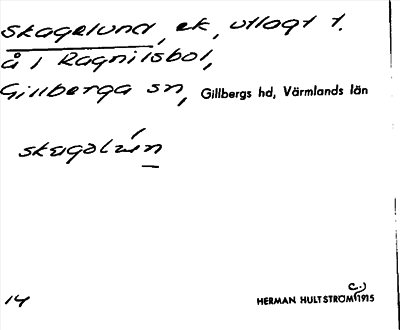 Skagelund, ek, utlagt t.
å 1 Ragnilsbol,
Gillberga sn, Gillbergs hd, Värmlands län
14
HERMAN HULTSTRÖM 1915